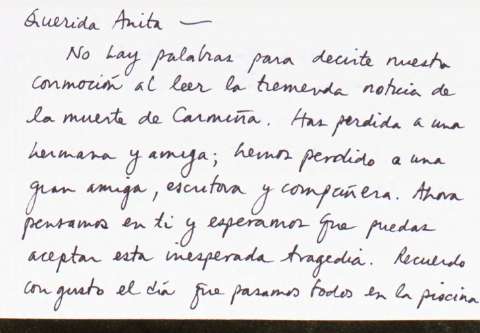 Querida Anita —
No hay palabras para decirte nuestra
conmoción al leer la tremenda noticia de
la muerte de Carmiña. Has perdida a una
hermana y amiga; hemos perdido a una
gran amiga, escritora y compañera. Ahora
pensamos en ti y esperamos que puedas
aceptar esta inesperada tragedia. Recuerdo
con gusto el día que pasamos todos en la piscina